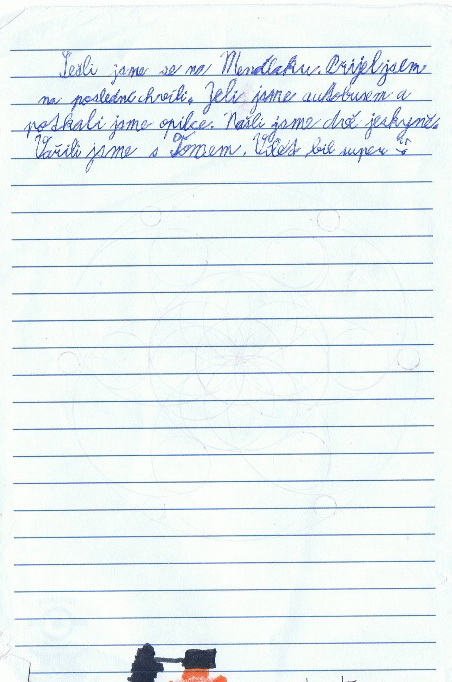 Sešli jsme se na Mendlaku. Přijel jsem
na poslední chvíli. Jeli jsme autobusem a
potkali jsme opilce. Našli jsme dvě jeskyně.
Vařili jsme s Tomem. Výlet bil super